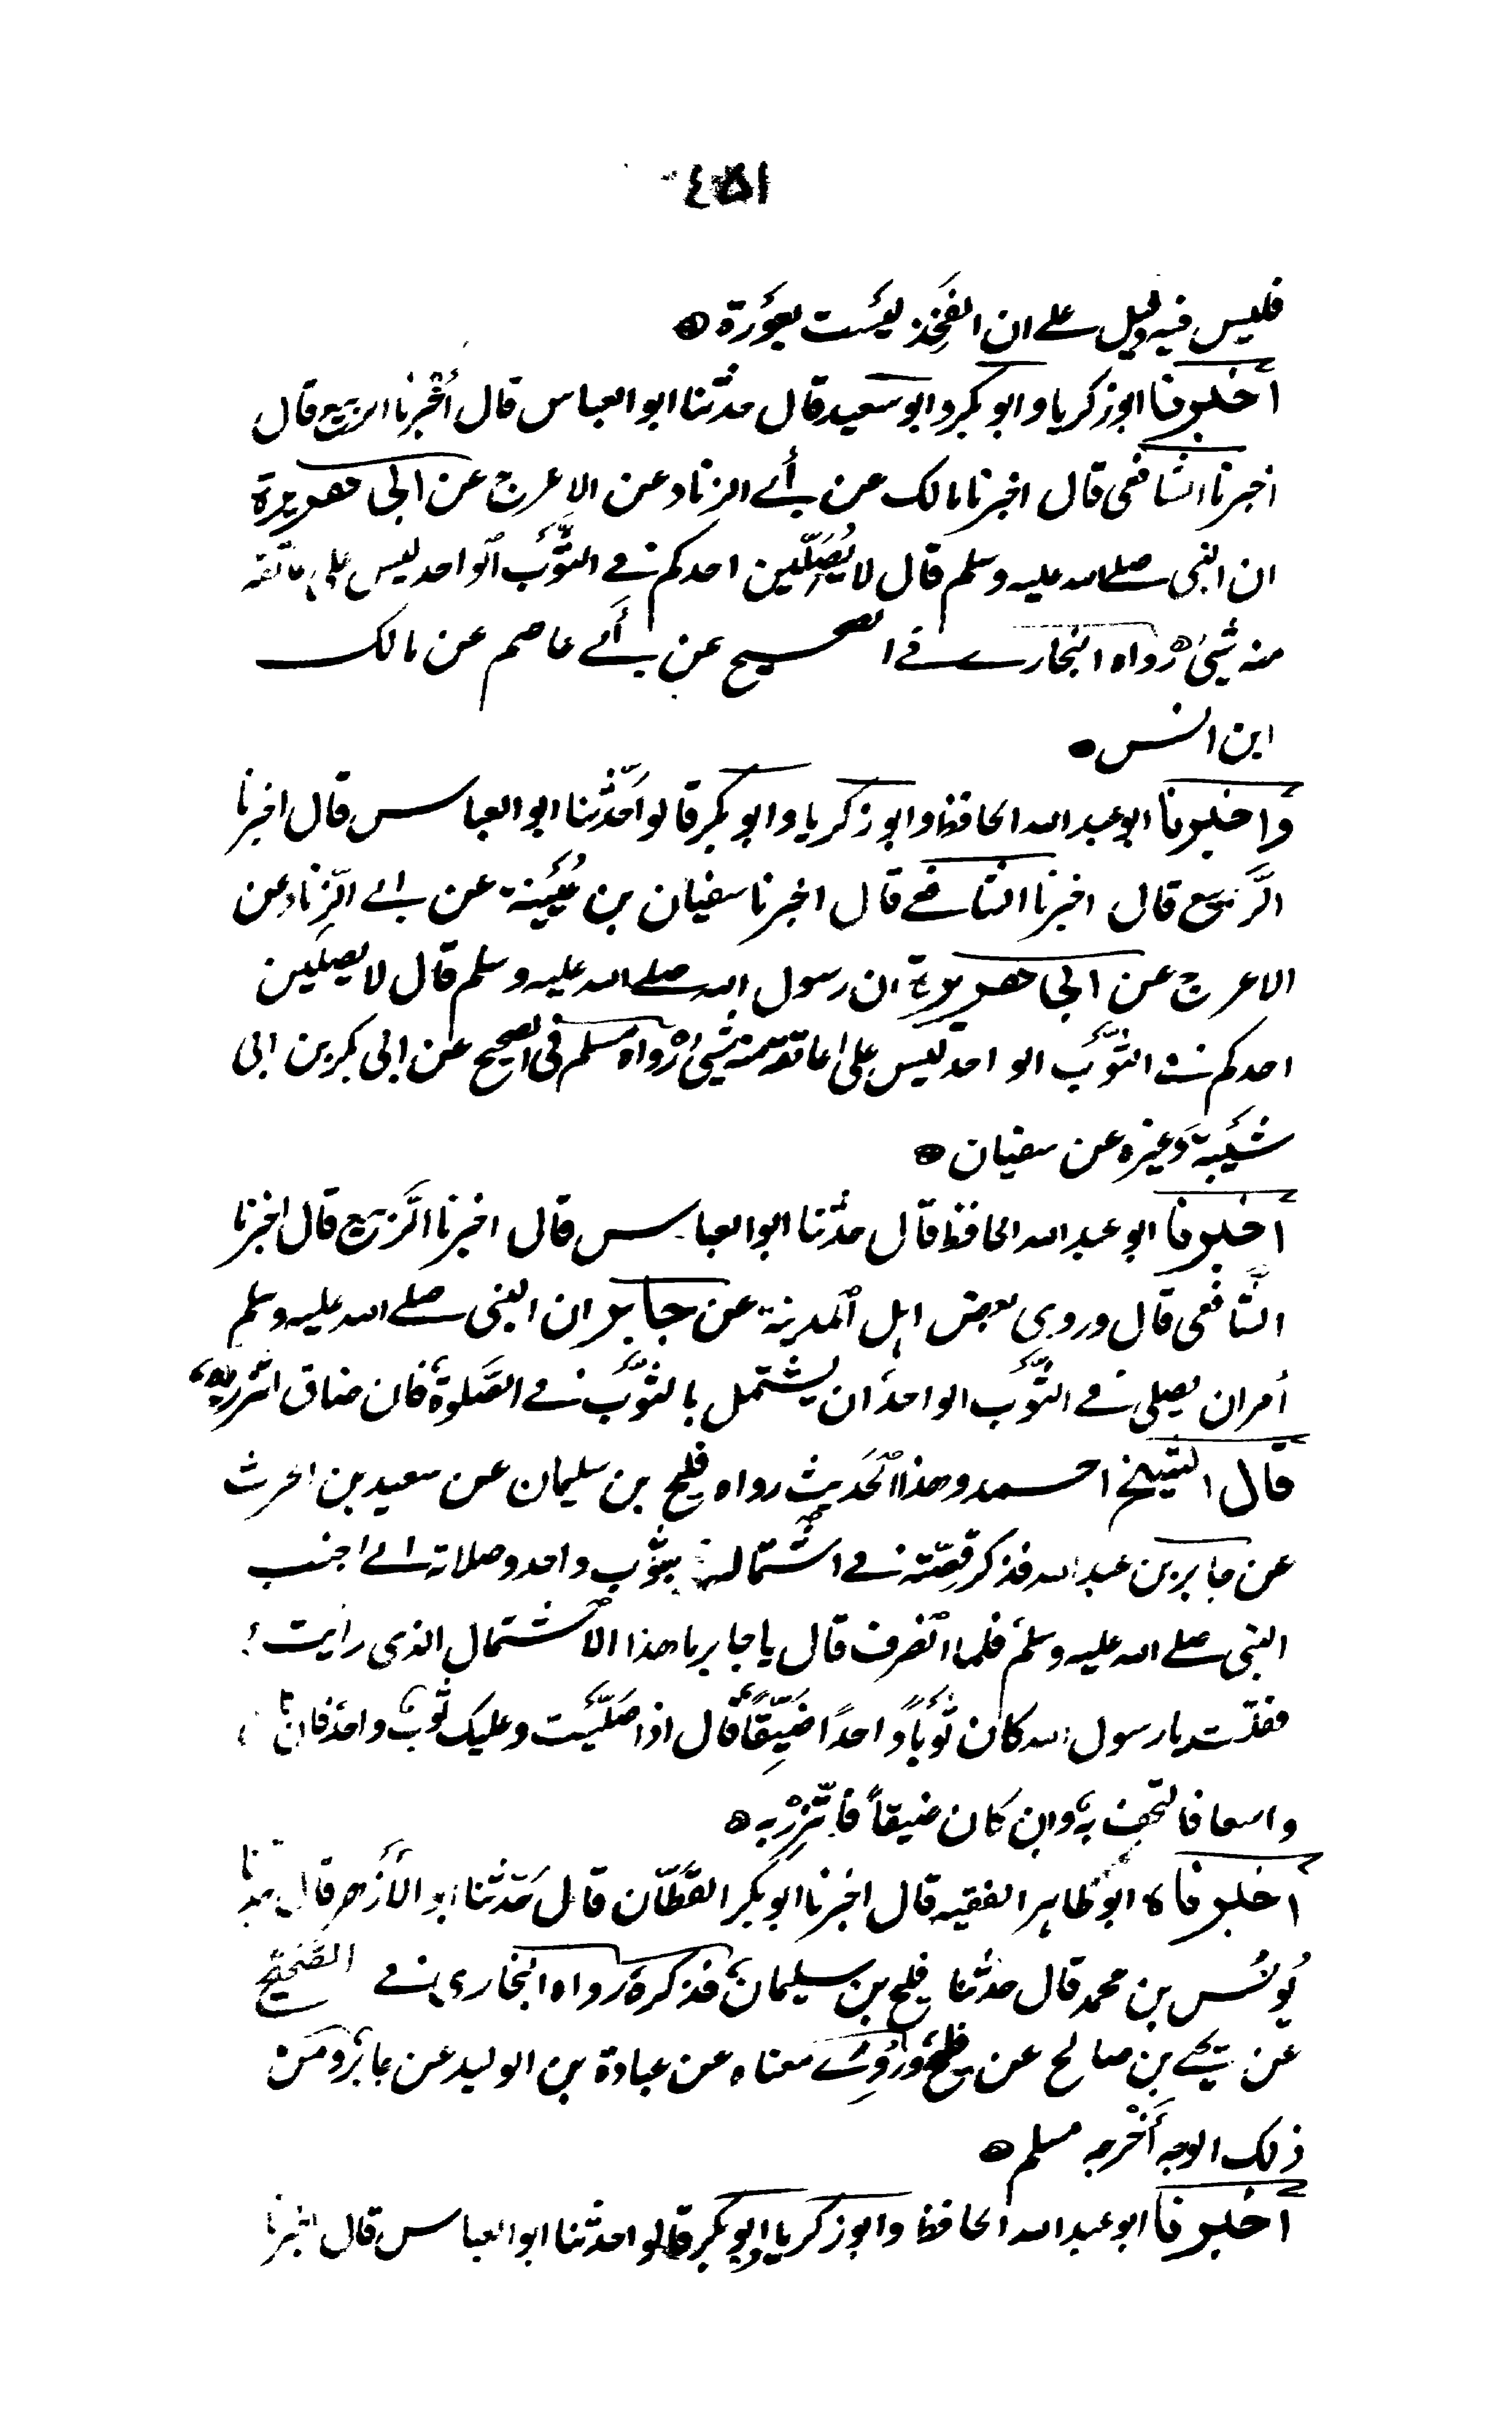 ٤٥١
فليس فيه دليل على ان الفَخِذ ليْست بعوْرة ه
أخبرنا ابو زكريا وابو بكر وابو سعيد قال حدثنا ابو العباس قال أخْبرنا الربيع قال
اخبرنا الشافعى قال اخبرنا مالك عن أبى الزناد عن الاعرج عن ابى هريرة
ان النبى صلى الله عليه وسلم قال لا يُصَلّين احدكم فى الثَّوْب الواحد ليس على عاتقه
منه شئ رواه البخارى فى الصحيح عن أبى عاصم عن مالك
ابن انس ه
وأخبرنا ابو عبد الله الحافظ وابو زكريا وابو بكر قالوا حَدّثنا ابو العباس قال اخبرنا
الرَّبيع قال اخبرنا الشافعى قال اخبرنا سفيان بن عُيَيْنة عن ابى الزِّناد عن
الاعرج عن ابى هريرة ان رسول الله صلى الله عليه وسلم قال لا يصلين
احدكم فى الثَّوْب الواحد ليس على عاتقه منه شئ رواه مسلم فى الصحيح عن ابى بكر بن ابى
شَيْبة وَغيره عن سفيان ه
أخبرنا ابو عبد الله الحافظ قال حدثنا ابو العباس قال اخبرنا الرَّبيع قال اخبرنا
الشَّافعى قال وروى بعض اهل المدينة عن جابر ان النبى صلى الله عليه وسلم
أمر ان يصلى فى الثَّوْب الواحد ان يشتمل بالثَّوْب فى الصَّلوة فان ضاق اتزر به
قال الشيخ احمد وهذا الْحَديث رواه فليح بن سليمان عن سعيد بن الحرث
عن جابر بن عبد الله فذكر قصّته فى اشتماله بثوْب واحد وصلاته الى جنب
النبى صلى الله عليه وسلم فلما انْصرف قال يا جابر ما هذا الاشتمال الذى رايت
فقلت يا رسول الله كان ثَوْباً واحداً ضَيِّقاً قال اذا صَلّيْت وعليك ثوْب واحد فان كان
واسعا فالتحف به وان كان ضيقاً فاتَّزِرْ به ه
أخبرنا ابو طاهر الفقيه قال اخبرنا ابو بكر القَطّان قال حَدّثنا ابو الأَزْهر قال حدثنا
يُونُس بن محمد قال حدثنا فليح بن سليمان فذكره رواه البخارى فى الصَّحيح
عن يحيى بن صالح عن فليح ورُوِىَ معناه عن عبادة بن الوليد عن جابر ومن
ذلك الوجه أَخْرجه مسلم ه
أخبرنا ابو عبد الله الحافظ وابو زكريا وابو بكر قالوا حدثنا ابو العباس قال اخبرنا